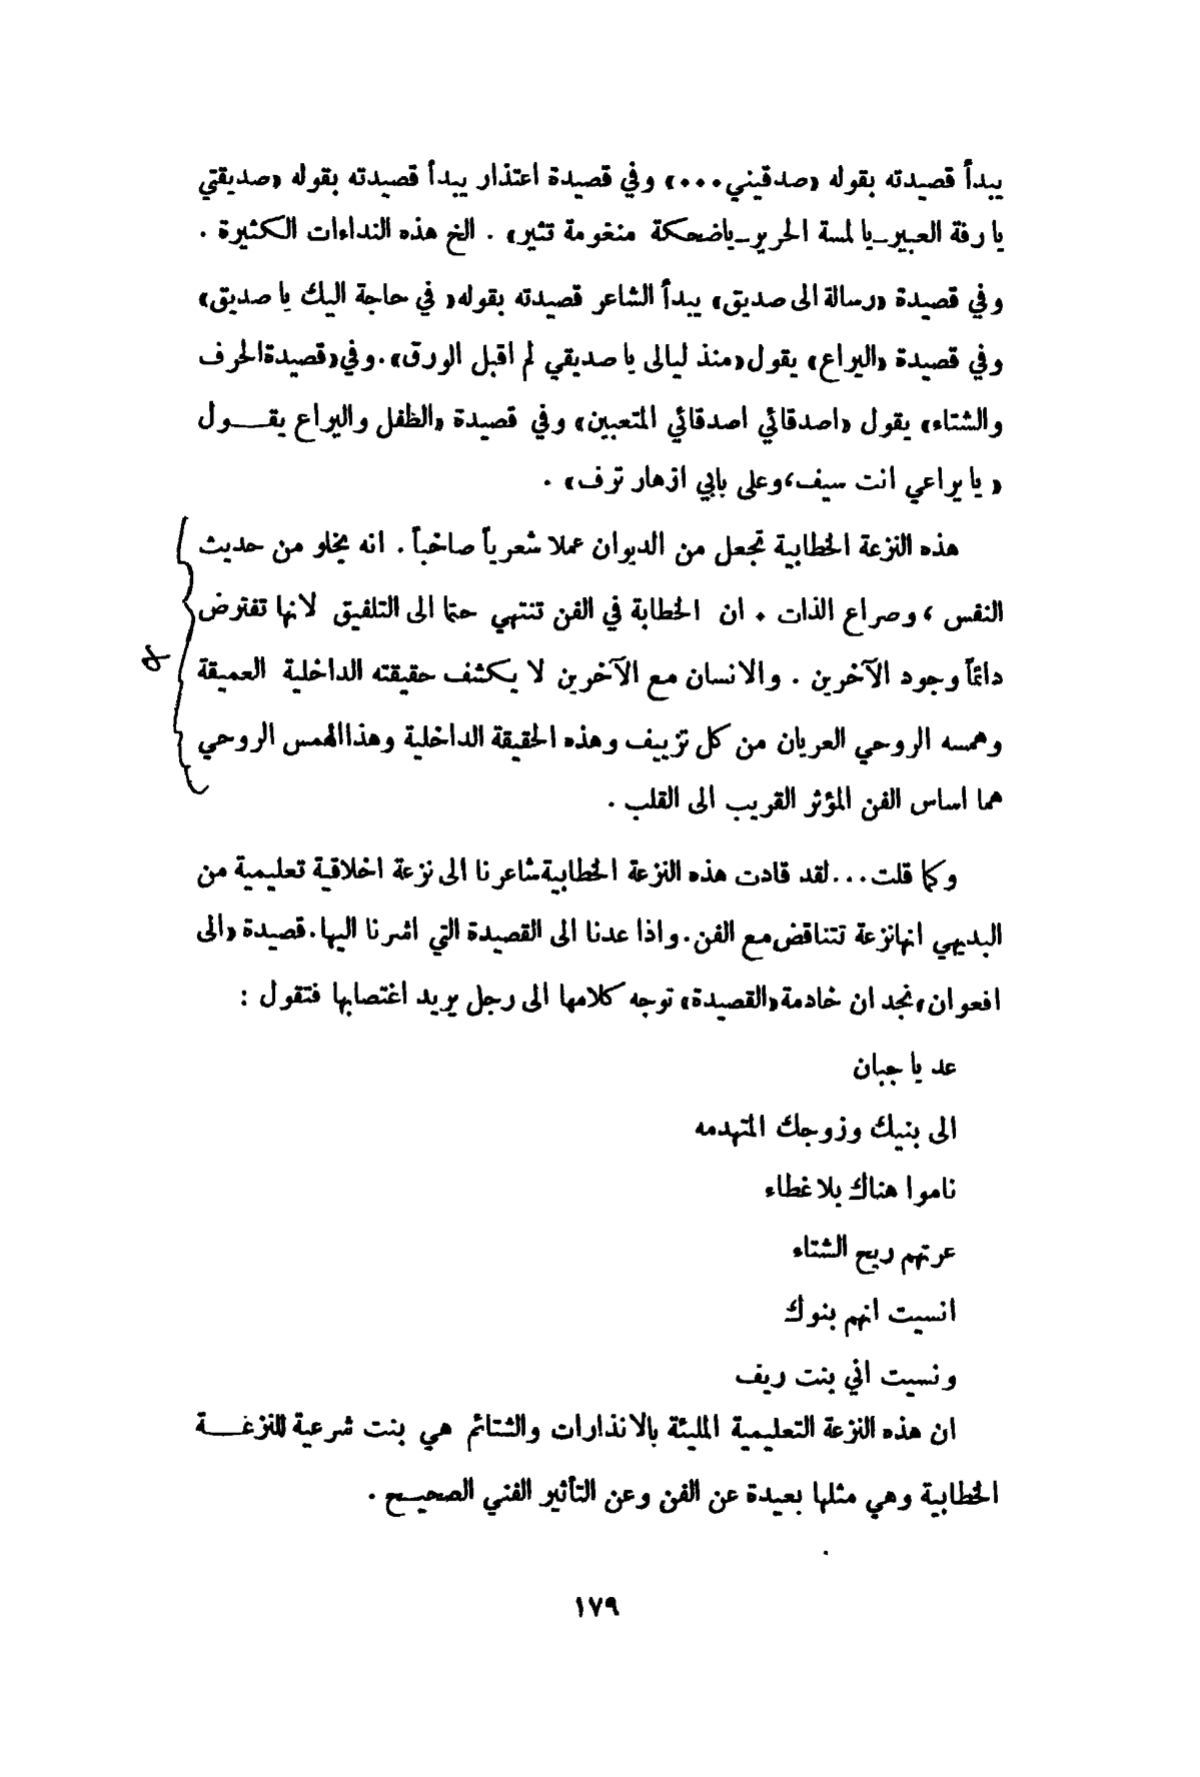 يبدأ قصيدته بقوله «صدقيني...» وفي قصيدة اعتذار يبدأ قصيدته بقوله «صديقتي
يا رفة العبير_يا لمسة الحرير_ياضحكة منغومة تثير» . الخ هذه النداءات الكثيرة .
وفي قصيدة «رسالة الى صديق» يبدأ الشاعر قصيدته بقوله« في حاجة اليك يا صديق»
وفي قصيدة «اليراع» يقول«منذ ليالى يا صديقي لم اقبل الورق».وفي«قصيدةالحرف
والشتاء» يقول «اصدقائي اصدقائي المتعبين» وفي قصيدة «الظفل واليراع يقـــول
« يا يراعي انت سيف،وعلى بابي ازهار ترف» .
هذه النزعة الخطابية تجعل من الديوان عملا شعرياً صاخباً . انه يخلو من حديث
النفس ، وصراع الذات . ان الخطابة في الفن تنتهي حتما الى التلفيق لانها تفترض
دائماً وجود الآخرين . والانسان مع الآخرين لا يكشف حقيقته الداخلية العميقة
وهمسه الروحي العريان من كل تزييف وهذه الحقيقة الداخلية وهذاالهمس الروحي
هما اساس الفن المؤثر القريب الى القلب .
وكما قلت...لقد قادت هذه النزعة الخطابيةشاعرنا الى نزعة اخلاقية تعليمية من
البديهي انهانزعة تتناقض مع الفن.واذا عدنا الى القصيدة التي اشرنا اليها.قصيدة «الى
افعوان»نجد ان خادمة«القصيدة» توجه كلامها الى رجل يريد اغتصابها فتقول :
عد يا جبان
الى بنيك وزوجك المتهدمه
ناموا هناك بلا غطاء
عرتهم ريح الشتاء
انسيت انهم بنوك
ونسيت اني بنت ريف
ان هذه النزعة التعليمية المليئة بالانذارات والشتائم هي بنت شرعية للنزعـــة
الخطابية وهي مثلها بعيدة عن الفن وعن التأثير الفني الصحيح .
١٧٩